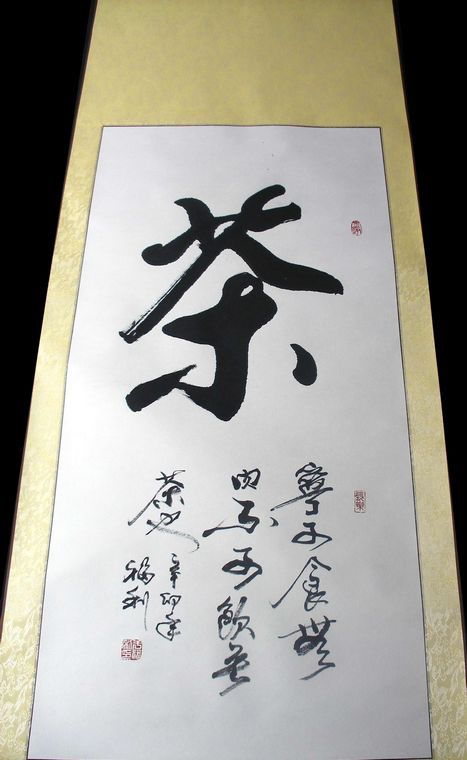 茶
寧可食無
肉不可飲無
茶也
辛卯年
福利